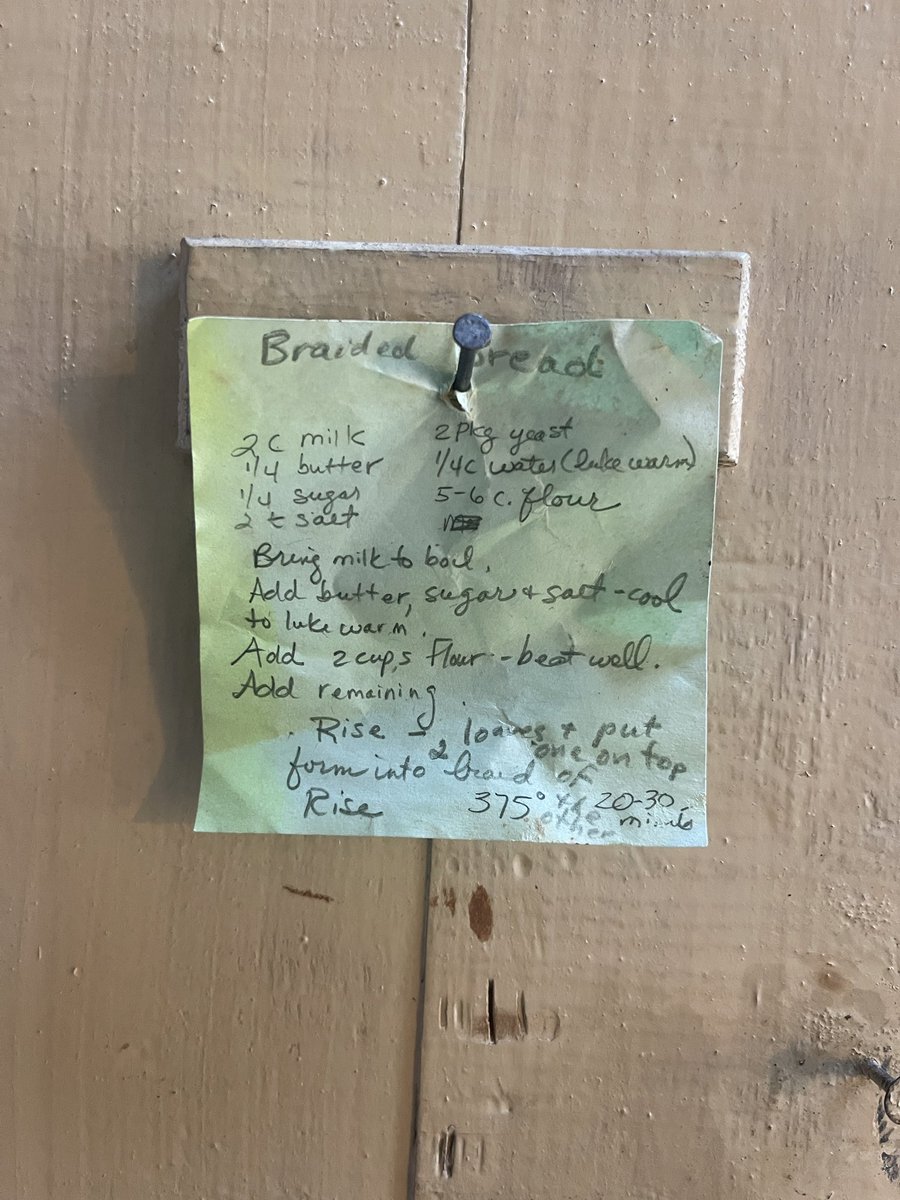 Braided Bread
2 c milk
1/4 butter
1/4 sugar
2 t salt
2 pkg yeast
1/4 c water (luke warm)
5-6 c. flour
Bring milk to boil.
Add butter, sugar + salt - cool
to luke warm.
Add 2 cups Flour - beat well.
Add remaining.
Rise - 2 loaves + put
form into braid one on top
of the other
Rise 375° 20-30
minutes